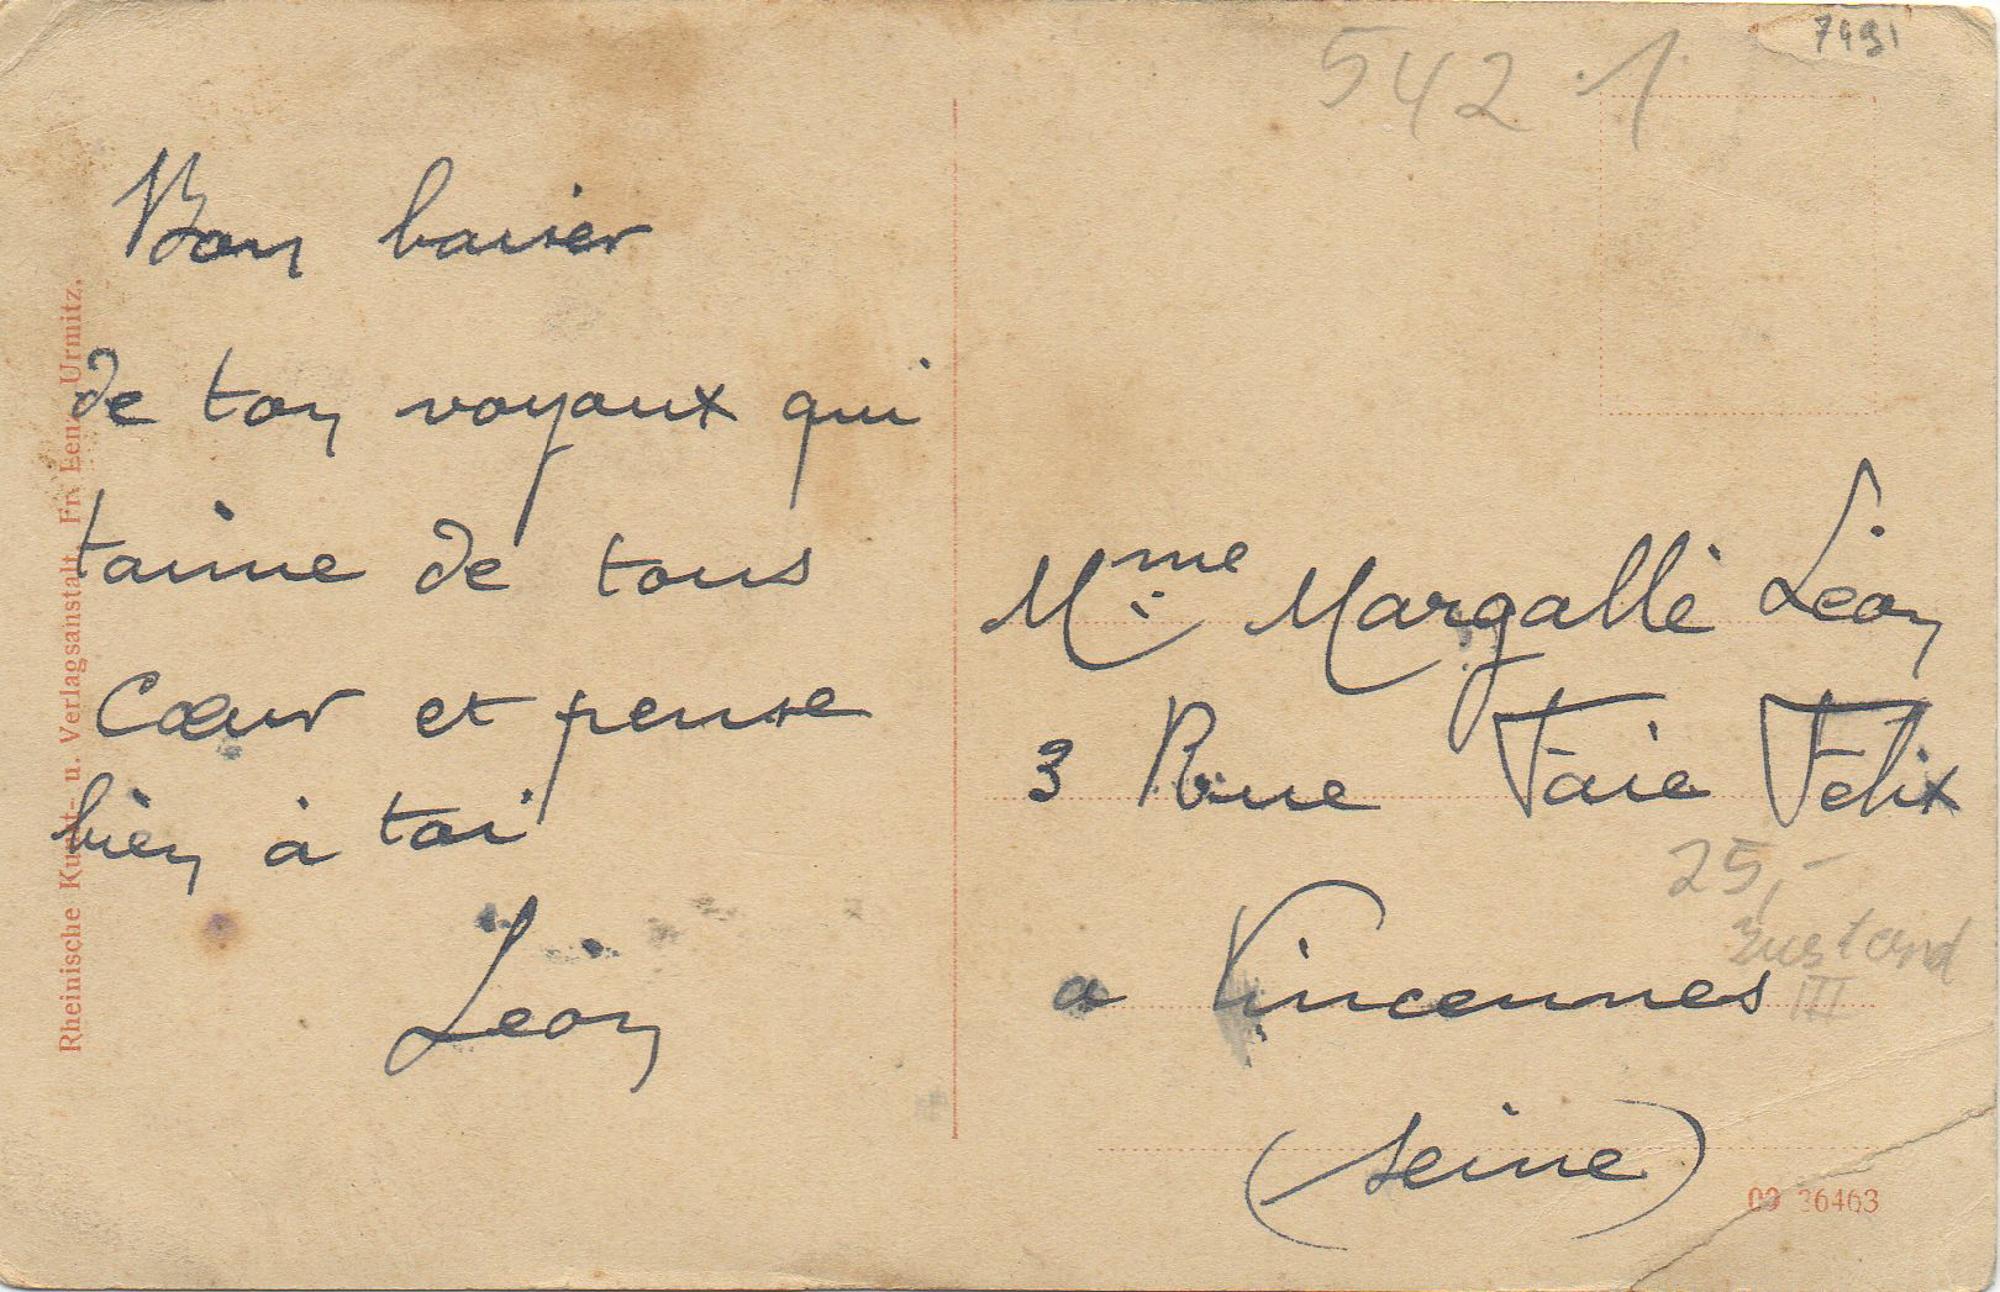 Bon baiser
de ton voyoux qui
taime de tous
Cœur et pense
bien à toi
Léon
Mme Margallé Léon
3 Rue Faie Felix
a Vincennes
(Seine)
542 1
7491
25,-
Zustand
III
Rheinische Kunst- u. Verlagsanstalt Fr. Lenz, Urmitz.
09 36463